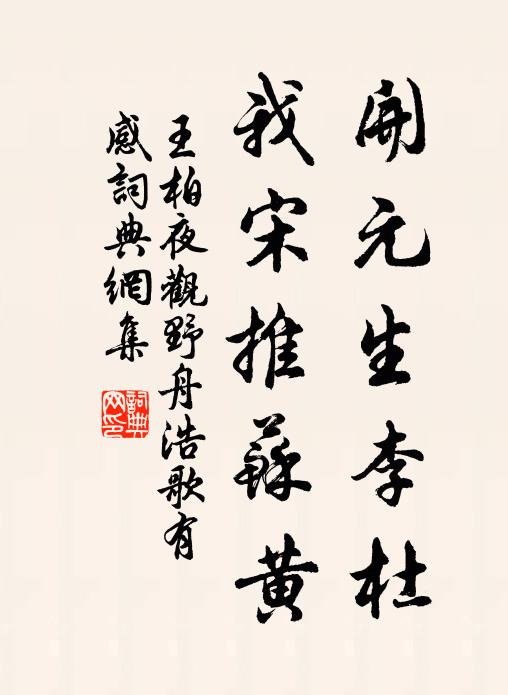 開元生李杜
我宋推蘇黃
王柏夜觀野舟浩歌有
感詞典網集
詞典
网印